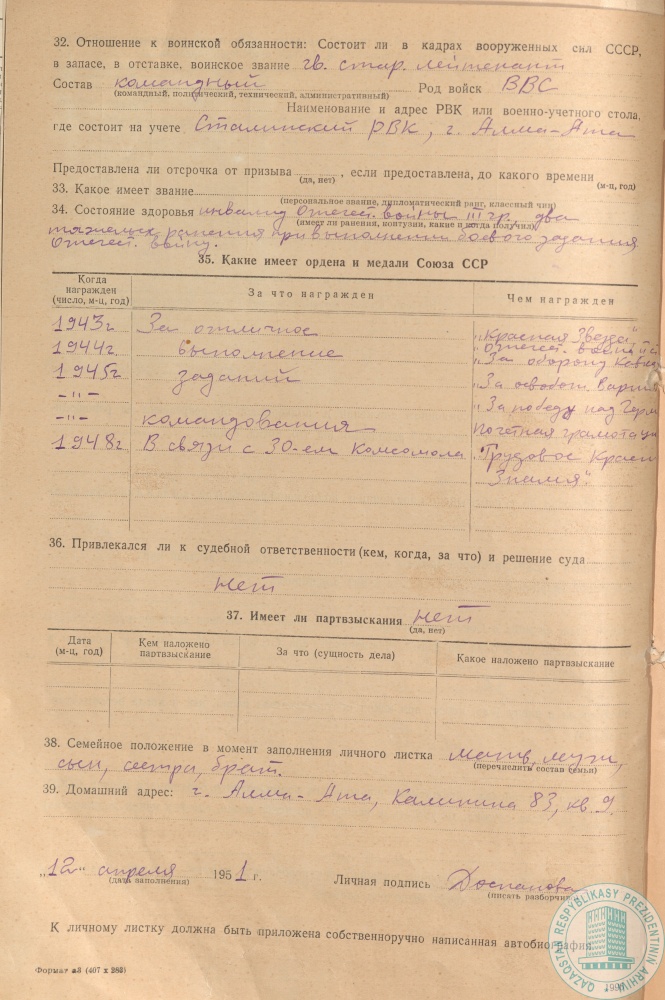 32. Отношение к воинской обязанности: Состоит ли в кадрах вооруженных сил СССР,
в запасе, в отставке, воинское звание гв. стар. лейтенант
Состав командный Род войск ВВС
(командный, политический, технический, административный)
Наименование и адрес РВК или военно-учетного стола,
где состоит на учете Сталинский РВК, г. Алма-Ата
Предоставлена ли отсрочка от призыва , если предоставлена, до какого времени
(да, нет) (м-ц, год)
33. Какое имеет звание
(персональное звание, дипломатический ранг, классный чин)
34. Состояние здоровья инвалид Отечест. войны III гр., два
(имеет ли ранения, контузии, какие и когда получил)
тяжелых ранения при выполнении боевого задания
Отечест. войну.
35. Какие имеет ордена и медали Союза ССР
Когда награжден (число, м-ц, год) За что награжден Чем награжден
1943г. За отличное „Красная Звезда"
1944г. выполнение „Отечест. войны II
1945г. заданий „За оборону Кавка
–"– „За освобож. Варш
–"– командования „За победу над Герм
Почетная грамота
1948г. В связи с 30-ем Комсомола „Трудовое Красн
Знамя".
36. Привлекался ли к судебной ответственности (кем, когда, за что) и решение суда
нет
37. Имеет ли партвзыскания нет
(да, нет)
Дата (м-ц, год) Кем наложено партвзыскание За что (сущность дела) Какое наложено партвзыскание
38. Семейное положение в момент заполнения личного листка мать, муж,
(перечислить состав семьи)
сын, сестра, брат.
39. Домашний адрес: г. Алма-Ата, Калинина 83, кв. 9.
„12" апреля 1951 г. Личная подпись Доспанова
(дата заполнения) (писать разборчиво)
К личному листку должна быть приложена собственноручно написанная автобиография.
Формат а3 (407 х 288)
QAZAQSTAN RESPÝBLIKASY PREZIDENTINIŃ ARHIVI